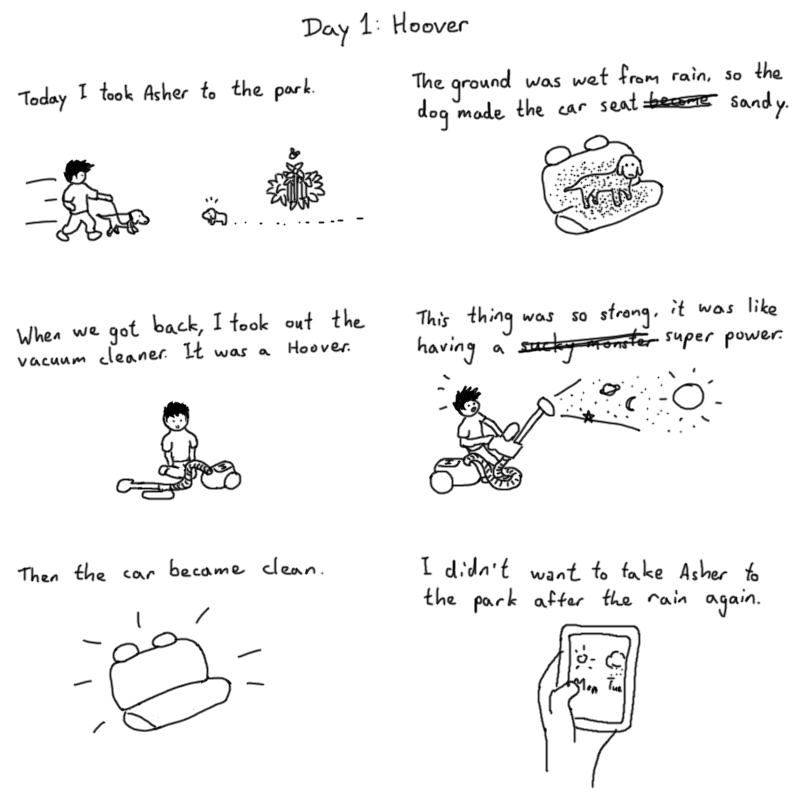 Day 1: Hoover
Today I took Asher to the park.
The ground was wet from rain, so the
dog made the car seat become sandy.
When we got back, I took out the
vacuum cleaner. It was a Hoover.
This thing was so strong, it was like
having a sucky monster super power.
Then the car became clean.
I didn't want to take Asher to
the park after the rain again.
Mon Tue